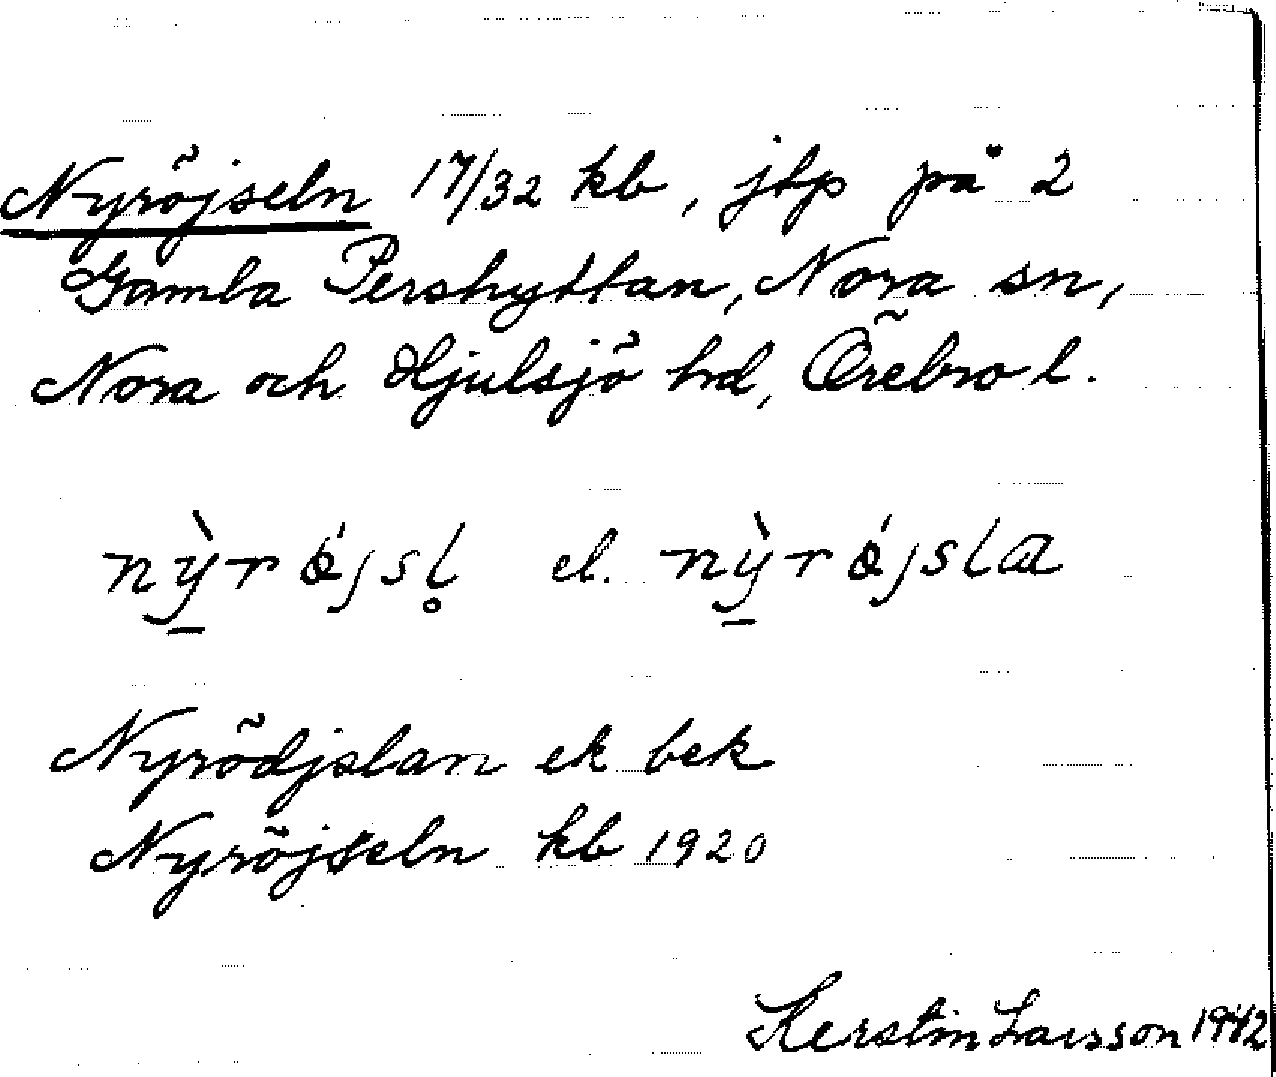 Nyröjseln 17/32 kb, jtp på 2
Gamla Pershyttan, Nora sn,
Nora och Hjulsjö hrd, Örebro l.
nỳ̠rǿjsl̥ el. nỳ̠rǿjsla
Nyrödjslan ek bek
Nyröjseln kb 1920
Kerstin Larsson 1942